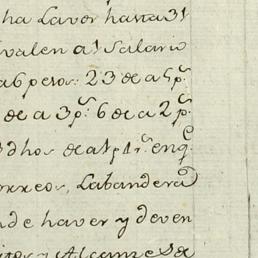 ha Lavor hasta 31
valen a 1 Salario
a6 pesos: 23 de a 5 p.s
de a 3 p.s 6 de a 2 p.s
dhos de a 1 p.s enq.e
rreos, Labandera
nde haver y deven
y Alcanses de